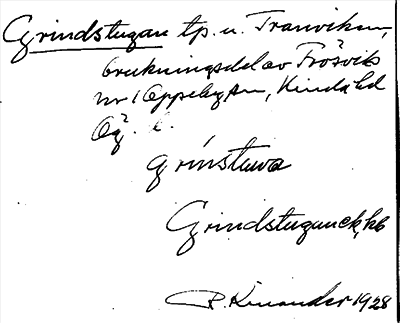 Grindstugan tp. u. Tranviken,
brukningsdel av Frösvik
nr 1 Oppeby sn, Kinda hd
Ög. l.
grinstuwa
Grindstugan ek. kb
R. Kinander 1928